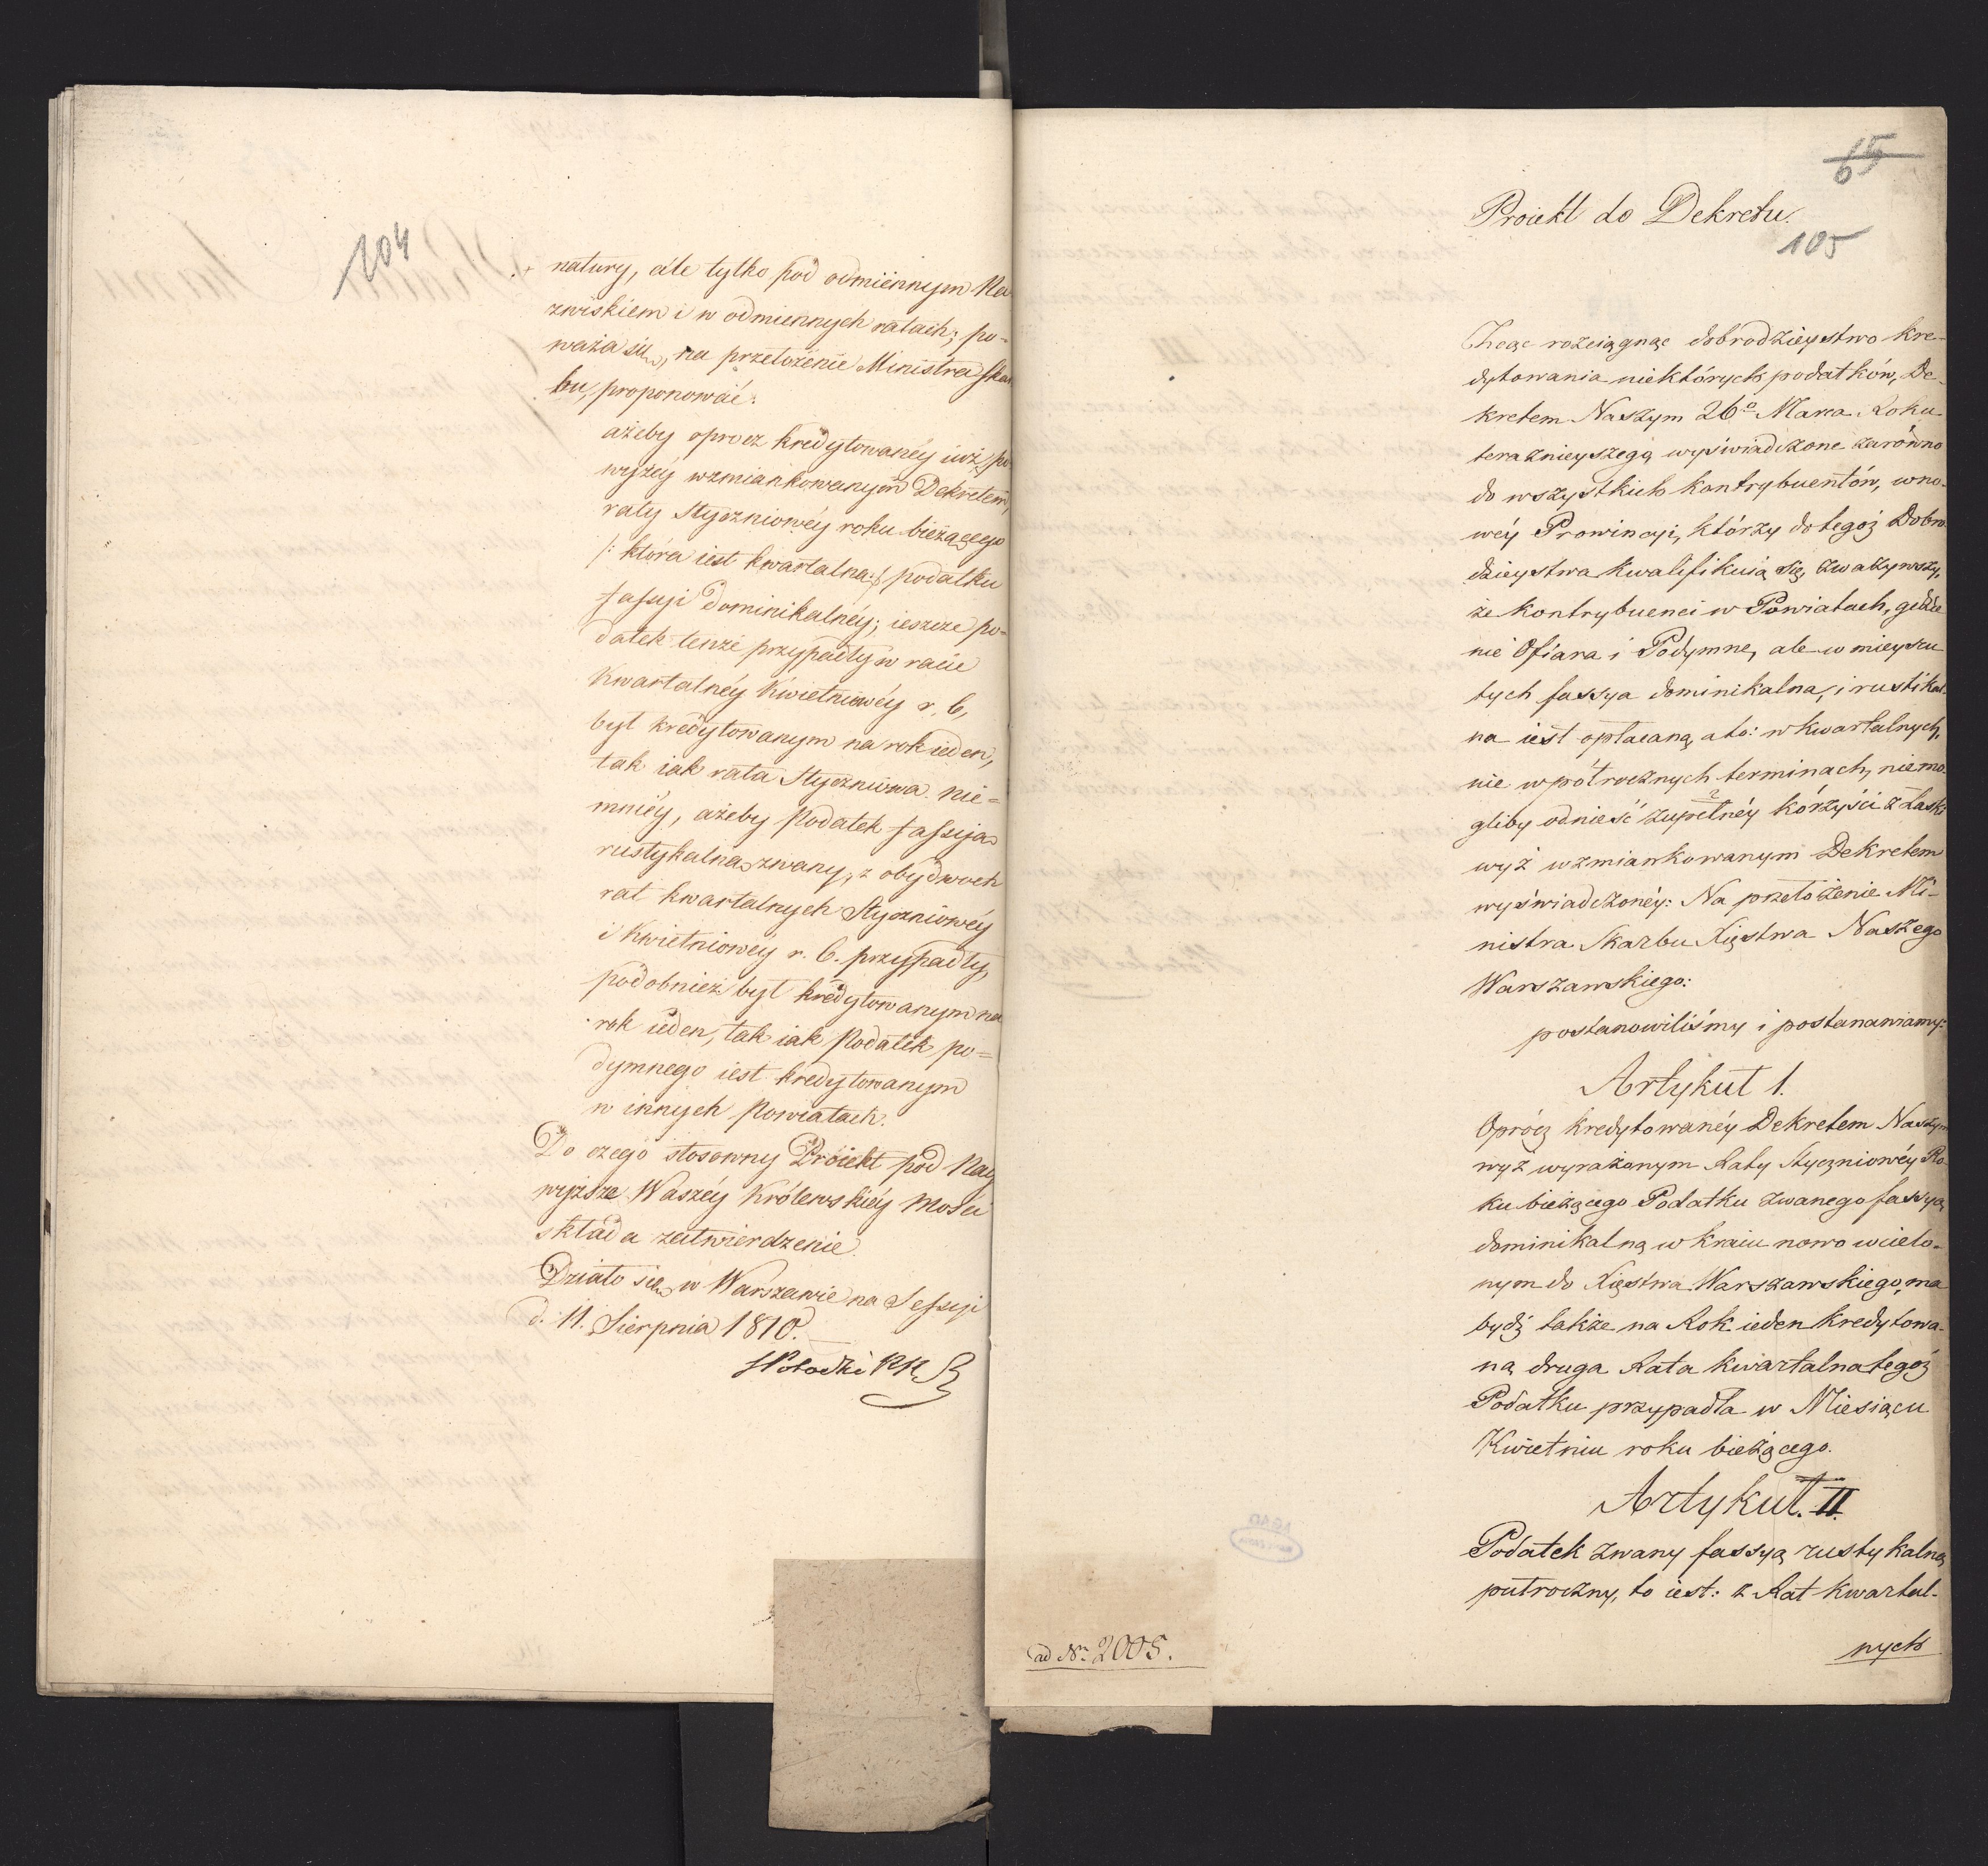 104
natury, ale tylko pod odmiennym Na
zwiskiem i w odmiennych ratach; po-
waża się, na przełożenie Ministra Skar
bu, proponować:
ażeby oprocz kredytowanéy iuż po
wyżéy wzmiankowanym Dekretem,
raty Styczniowéy roku bieżącego
/: która iest kwartalna :/ podatku
fassyi Dominikalnéy; ieszcze po-
datek tenże przypadły w racie
Kwartalnéy Kwietniowéy r. b,
był kredytowanym na rok ieden,
tak iak rata Styczniowa. nie-
mniéy, ażeby Podatek fassyja
rustykalna zwany, z obydwoch
rat kwartalnych Styczniowéy
i Kwietniowéy r. b. przypadły,
podobnież był kredytowanym na
rok ieden, tak iak Podatek po-
dymnego iest kredytowanym
w innych Powiatach.
Do czego stosowny Proiekt pod Nay
wyższe Waszéy Królewskiéy Mości
składa zatwierdzenie.
Działo się w Warszawie na Sessyi
d. 11. Sierpnia 1810.
65
Proiekt do Dekretu.
105
Chcąc rozciągnąc dobrodzieystwo kre-
dytowania niektórych podatków, De-
kretem Naszym 26º Marca Roku
teraznieyszego wyświadczone zarówno
do wszystkich kontrybuentów, w no-
wéy Prowincyi, którzy do tegoż Dobro
dzieystwa kwalifikuią się, zważywszy,
że kontrybuenci w Powiatach, gdzie
nie Ofiara i Podymne, ale w mieyscu
tych fassya dominikalna, i rustikal-
na iest opłacaną, a to: w kwartalnych,
nie w półrocznych terminach, niemo-
gliby odnieść zupełnéy kórzyści z łaski
wyż wzmiankowanym Dekretem
wyświadczonéy: Na przełożenie Mi-
nistra Skarbu Xięstwa Naszego
Warszawskiego:
postanowiliśmy i postanawiamy:
Artykuł 1.
Oprócz kredytowanéy Dekretem Naszym
wyż wyrażonym Raty Styczniowéy Ro-
ku bieżącego Podatku zwanego fassyą
dominikalną w kraiu nowo wcielo-
nym do Xięstwa Warszawskiego, ma
bydź także na Rok ieden kredytowa-
ną druga Rata kwartalna tegóż
Podatku przypadła w Miesiącu
Kwietniu roku bieżącego.
Artykuł. II.
Podatek zwany fassyą rustykalną
pułroczny, to iest: z Rat kwartal-
nych
ad Nr 2005.